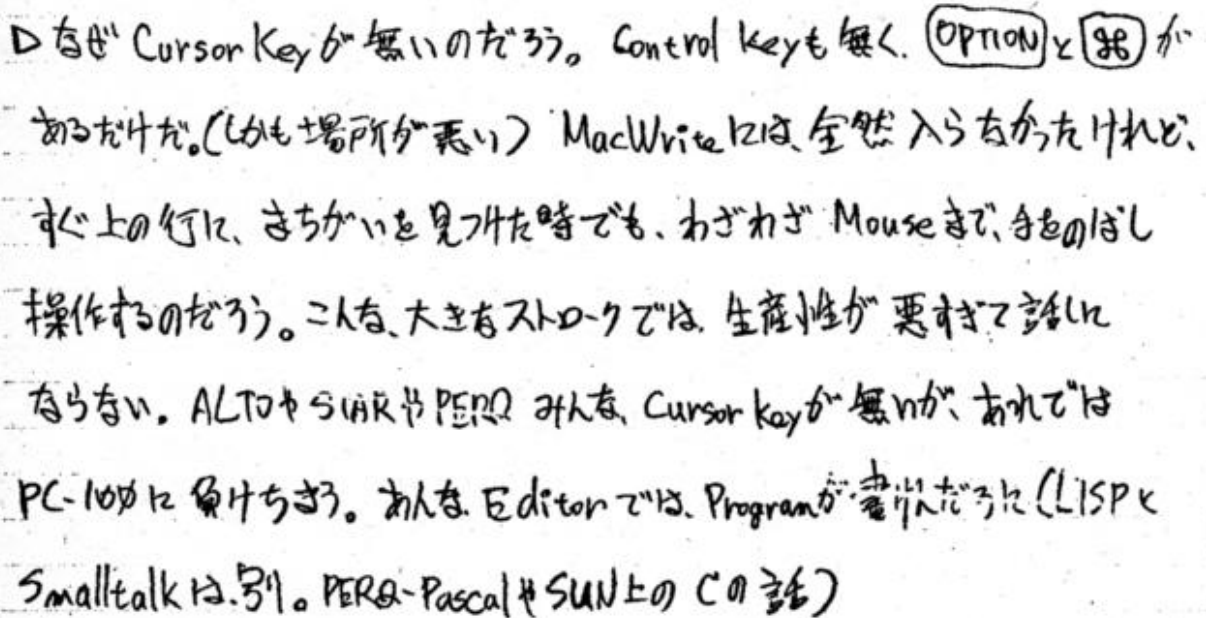 ▷なぜ Cursor Keyが無いのだろう。Control keyも無く. OPTION と ⌘ が
あるだけだ。(しかも場所が悪い) MacWriteには、全然入らなかったけれど、
すぐ上の行に、まちがいを見つけた時でも、わざわざ Mouseまで、手をのばし
操作するのだろう。こんな、大きなストロークでは、生産性が悪すぎて話しに
ならない。ALTOやSTARやPERQ みんな、Cursor keyが無いが、あれでは
PC-100に負けちまう。あんな、Editorでは、Programが書けんだろうに (LISPと
Smalltalkは.別。PERQ-PascalやSUN上の Cの話)